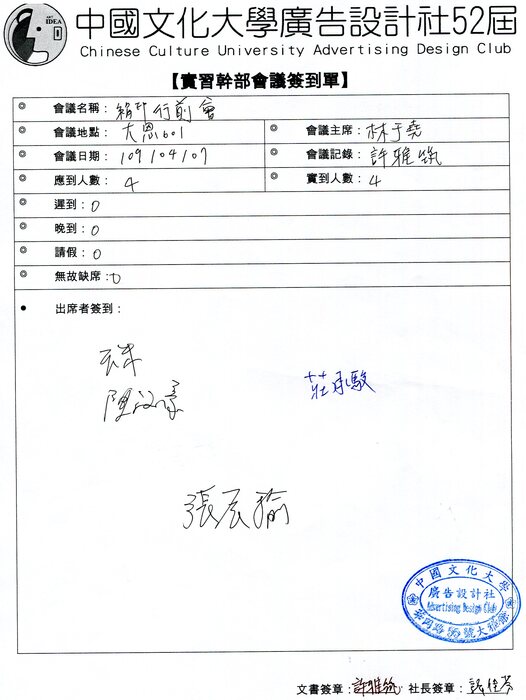 IDEA
中國文化大學廣告設計社52屆
Chinese Culture University Advertising Design Club
【實習幹部會議簽到單】
◎ 會議名稱：絹印行前會
◎ 會議地點：大恩601 ◎ 會議主席：林于堯
◎ 會議日期：109/04/07 ◎ 會議記錄：許雅筑
◎ 應到人數：4 ◎ 實到人數：4
◎ 遲到：0
◎ 晚到：0
◎ 請假：0
◎ 無故缺席：0
• 出席者簽到：
莊承駿
張辰瑜
中國文化大學
廣告設計社
Advertising Design Club
華岡路55號大雅館
文書簽章：許雅筑 社長簽章：